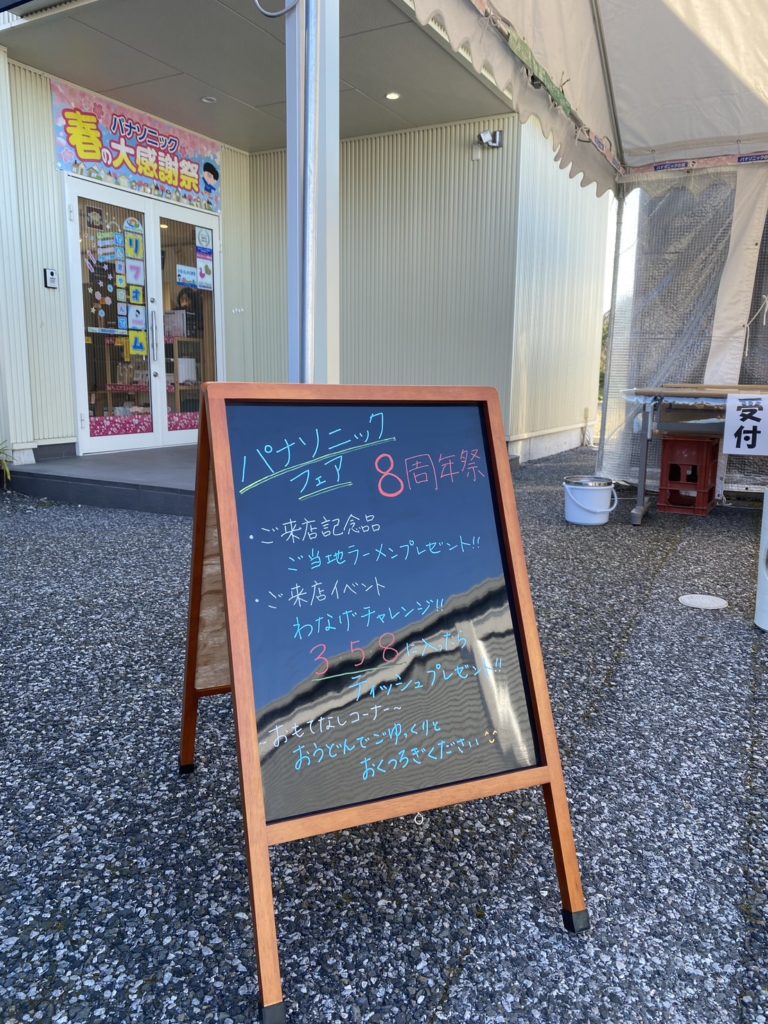 パナソニック
春の大感謝祭
リフォーム
受付
パナソニック
フェア
8周年祭
・ご来店記念品
ご当地ラーメンプレゼント!!
・ご来店イベント
わなげチャレンジ!!
3 5 8に入ったら
ティッシュプレゼント!!
~おもてなしコーナー~
おうどんでごゆっくりと
おくつろぎください